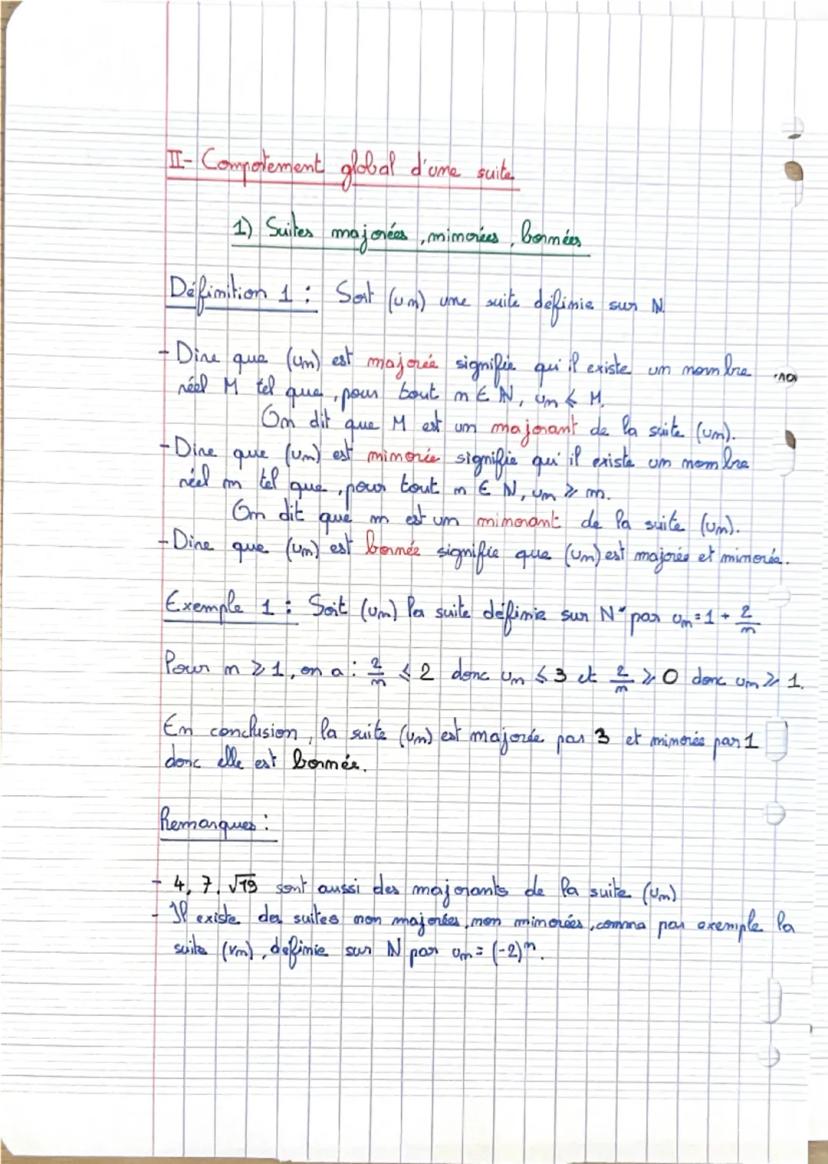 II- Comportement global d'une suite
1) Suites majorées, minorées, bornées
Définition 1 : Soit (un) une suite définie sur N
- Dire que (un) est majorée signifie qu'il existe un nombre
réel M tel que, pour tout n ∈ N, un ≤ M.
On dit que M est un majorant de la suite (un).
- Dire que (un) est minorée signifie qu'il existe un nombre
réel m tel que, pour tout n ∈ N, un ≥ m.
On dit que m est un minorant de la suite (un).
- Dire que (un) est bornée signifie que (un) est majorée et minorée.
Exemple 1 : Soit (un) la suite définie sur N* par un = 1 + 2/n
Pour n ≥ 1, on a : 2/n ≤ 2 donc un ≤ 3 et 2/n ≥ 0 donc un ≥ 1.
En conclusion, la suite (un) est majorée par 3 et minorée par 1
donc elle est bornée.
Remarques :
- 4, 7, √19 sont aussi des majorants de la suite (un)
- Il existe des suites non majorées, non minorées, comme par exemple la
suite (vn), définie sur N par un = (-2)ⁿ.